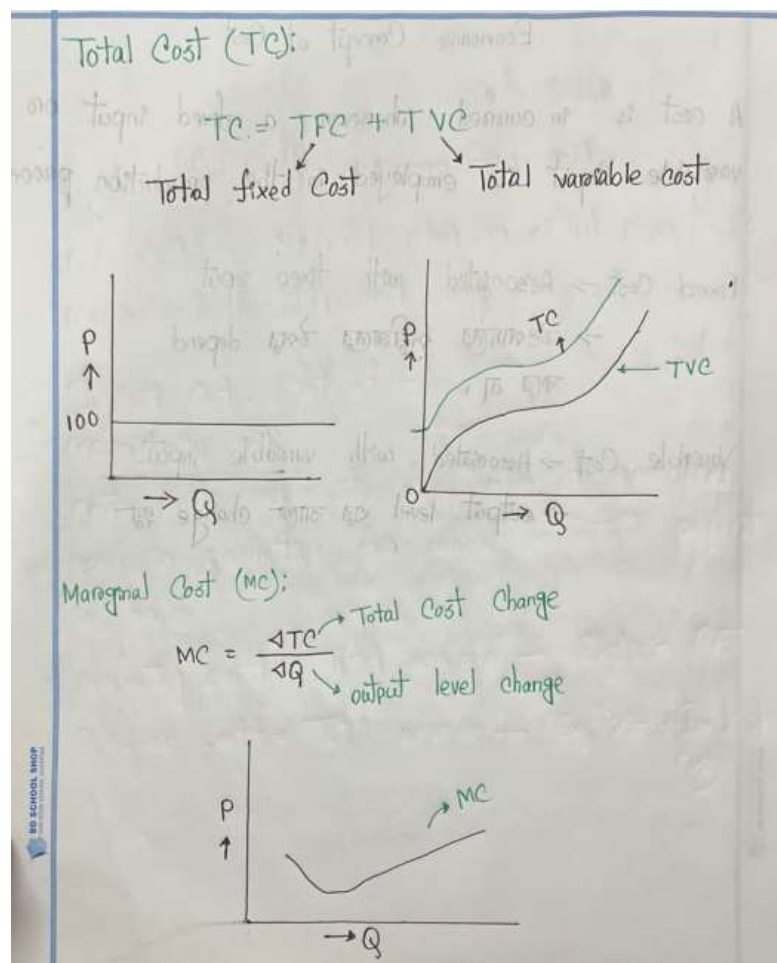 Total Cost (TC):
TC = TFC + TVC
Total fixed Cost
Total varosable cost
P
↑
100
→ Q
P
↑
TC
TVC
0
→ Q
Maroginal Cost (MC):
MC = ΔTC / ΔQ
Total Cost Change
output level change
P
↑
MC
→ Q
BG SCHOOL SHOP